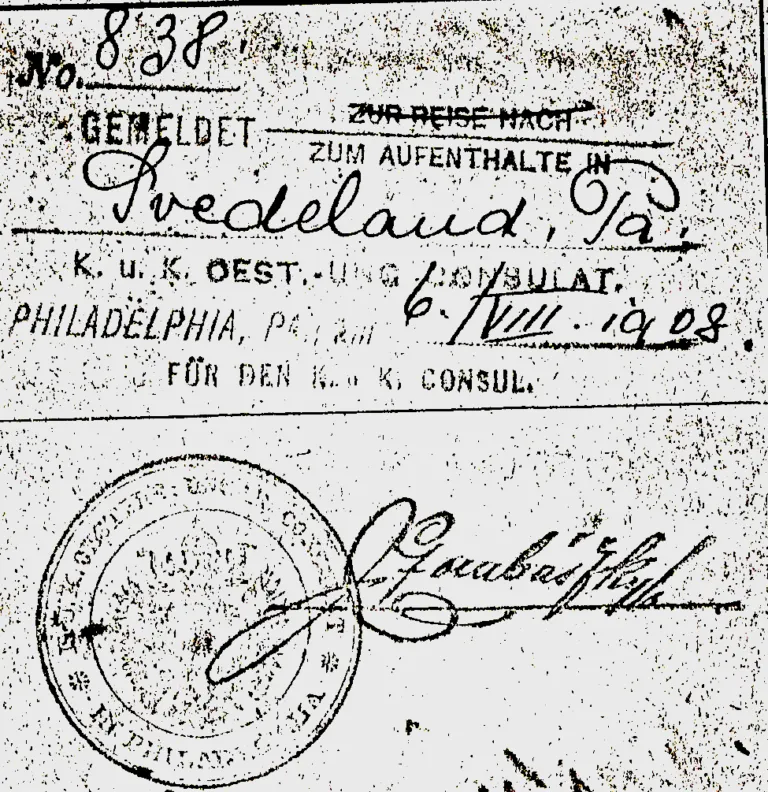 No. 838.
GEMELDET ZUR REISE NACH
ZUM AUFENTHALTE IN
Swedeland, Pa.
K. u. K. OEST.-UNG CONSULAT.
PHILADELPHIA, PA., am 6./VIII. 1908.
FÜR DEN K. u K. CONSUL.
IN PHILADELPHIA